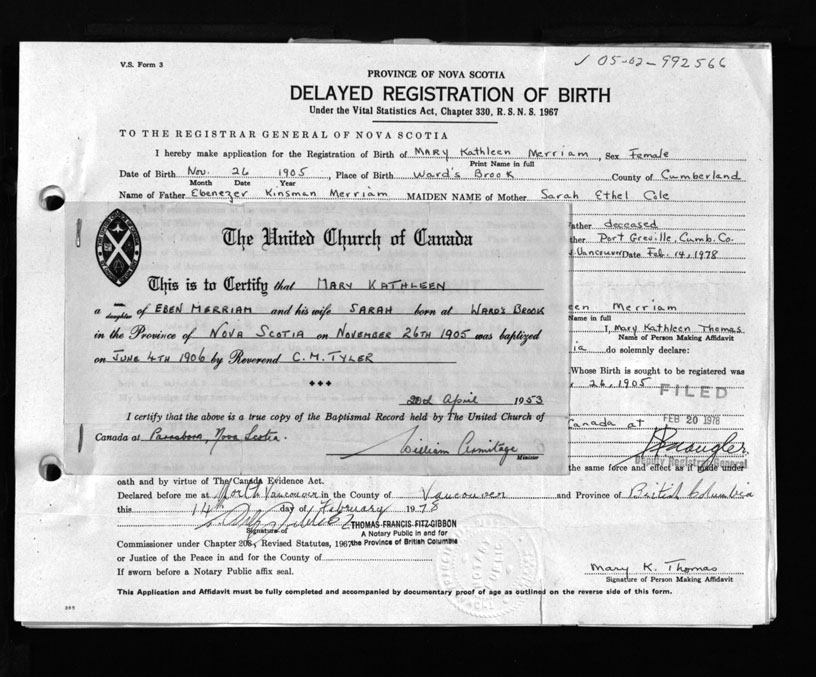 V.S. Form 3
✓ 05-02-992566
PROVINCE OF NOVA SCOTIA
DELAYED REGISTRATION OF BIRTH
Under the Vital Statistics Act, Chapter 330, R.S.N.S. 1967
TO THE REGISTRAR GENERAL OF NOVA SCOTIA
I hereby make application for the Registration of Birth of MARY Kathleen Merriam, Sex Female
Print Name in full
Date of Birth Nov. 26 1905 Place of Birth Ward's Brook County of Cumberland
Month Date Year
Name of Father Ebenezer Kinsman Merriam MAIDEN NAME of Mother Sarah Ethel Cole
ather deceased
ther Port Greville, Cumb. Co.
Vancouver Date Feb. 14, 1978
The United Church of Canada
This is to Certify that MARY KATHLEEN
a daughter of EBEN MERRIAM and his wife SARAH born at WARD'S BROOK
in the Province of NOVA SCOTIA on NOVEMBER 26TH 1905 was baptized
on JUNE 4TH 1906 by Reverend C. M. TYLER
22d April 1953
I certify that the above is a true copy of the Baptismal Record held by The United Church of
Canada at Parrsboro, Nova Scotia.
William Armitage
Minister
een Merriam
Name in full
I, Mary Kathleen Thomas
Name of Person Making Affidavit
ia do solemnly declare:
Whose Birth is sought to be registered was
26, 1905
FILED
Canada at
FEB 20 1978
Deputy Registrar General
the same force and effect as if made under
oath and by virtue of The Canada Evidence Act.
Declared before me at North Vancouver in the County of Vancouver and Province of British Columbia
this 14th day of February 1978
Signature of
THOMAS FRANCIS FITZ-GIBBON
A Notary Public in and for
the Province of British Columbia
Commissioner under Chapter 208, Revised Statutes, 1967
or Justice of the Peace in and for the County of
If sworn before a Notary Public affix seal.
Mary K. Thomas
Signature of Person Making Affidavit
This Application and Affidavit must be fully completed and accompanied by documentary proof of age as outlined on the reverse side of this form.